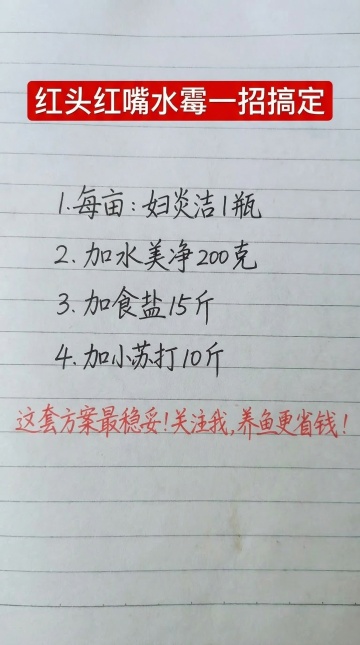 红头红嘴水霉一招搞定
1.每亩:妇炎洁1瓶
2.加水美净200克
3.加食盐15斤
4.加小苏打10斤
这套方案最稳妥!关注我,养鱼更省钱!